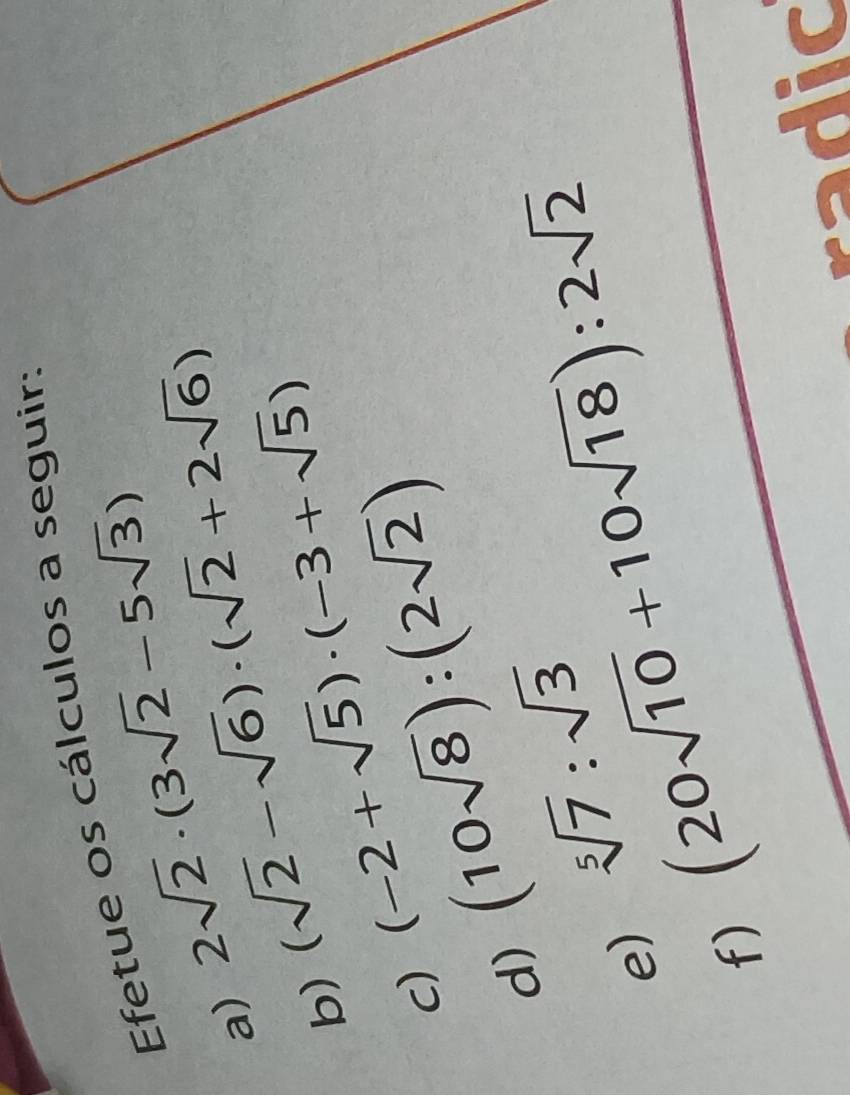 Efetue os cálculos a seguir:
a) 2√2 · (3√2 − 5√3)
b) (√2 − √6) · (√2 + 2√6)
c) (−2 + √5) · (−3 + √5)
d) (10√8) : (2√2)
e) ⁵√7 : √3
f) (20√10 + 10√18) : 2√2